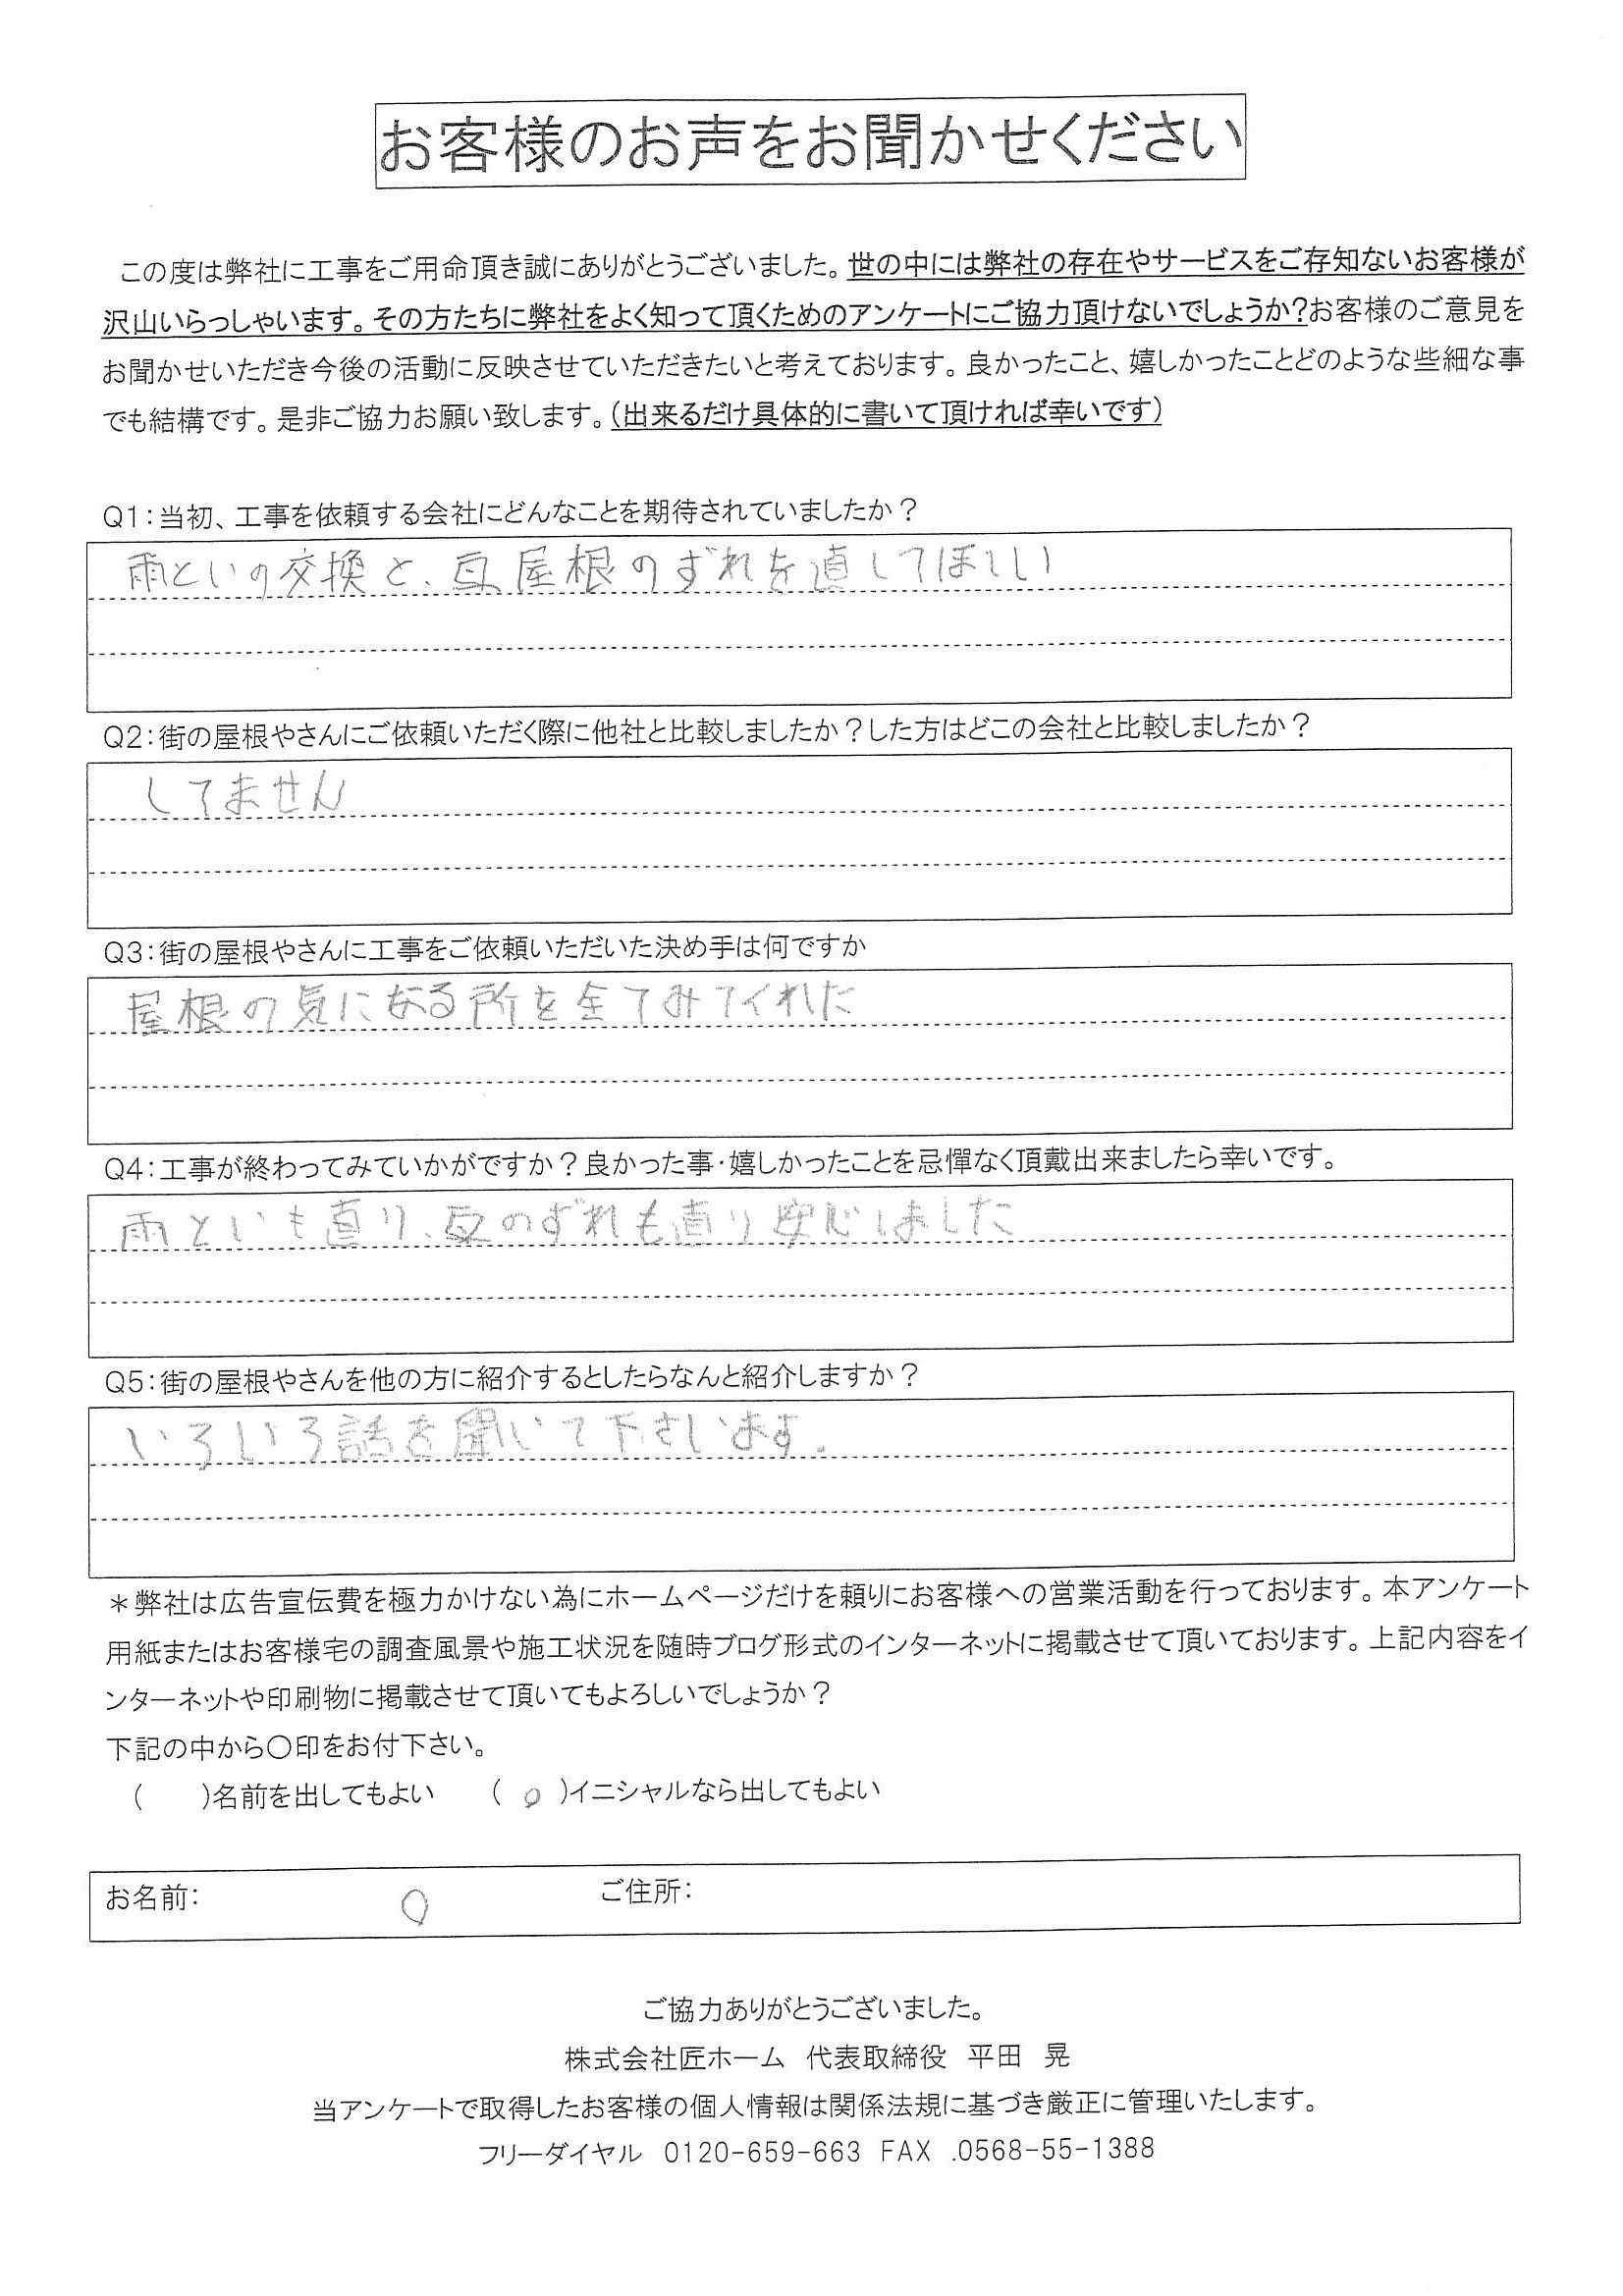 お客様のお声をお聞かせください
この度は弊社に工事をご用命頂き誠にありがとうございました。世の中には弊社の存在やサービスをご存知ないお客様が
沢山いらっしゃいます。その方たちに弊社をよく知って頂くためのアンケートにご協力頂けないでしょうか?お客様のご意見を
お聞かせいただき今後の活動に反映させていただきたいと考えております。良かったこと、嬉しかったことどのような些細な事
でも結構です。是非ご協力お願い致します。(出来るだけ具体的に書いて頂ければ幸いです)
Q1:当初、工事を依頼する会社にどんなことを期待されていましたか?
雨といの交換と、瓦屋根のずれを直してほしい
Q2:街の屋根やさんにご依頼いただく際に他社と比較しましたか?した方はどこの会社と比較しましたか?
してません
Q3:街の屋根やさんに工事をご依頼いただいた決め手は何ですか
屋根の気になる所を全てみてくれた
Q4:工事が終わってみていかがですか?良かった事・嬉しかったことを忌憚なく頂戴出来ましたら幸いです。
雨といも直り、瓦のずれも直り安心しました
Q5:街の屋根やさんを他の方に紹介するとしたらなんと紹介しますか?
いろいろ話を聞いて下さいます。
*弊社は広告宣伝費を極力かけない為にホームページだけを頼りにお客様への営業活動を行っております。本アンケート
用紙またはお客様宅の調査風景や施工状況を随時ブログ形式のインターネットに掲載させて頂いております。上記内容をイ
ンターネットや印刷物に掲載させて頂いてもよろしいでしょうか?
下記の中から〇印をお付下さい。
(　　)名前を出してもよい　　( 〇 )イニシャルなら出してもよい
お名前:　　　　O　　　　ご住所:
ご協力ありがとうございました。
株式会社匠ホーム　代表取締役　平田　晃
当アンケートで取得したお客様の個人情報は関係法規に基づき厳正に管理いたします。
フリーダイヤル　0120-659-663 FAX .0568-55-1388